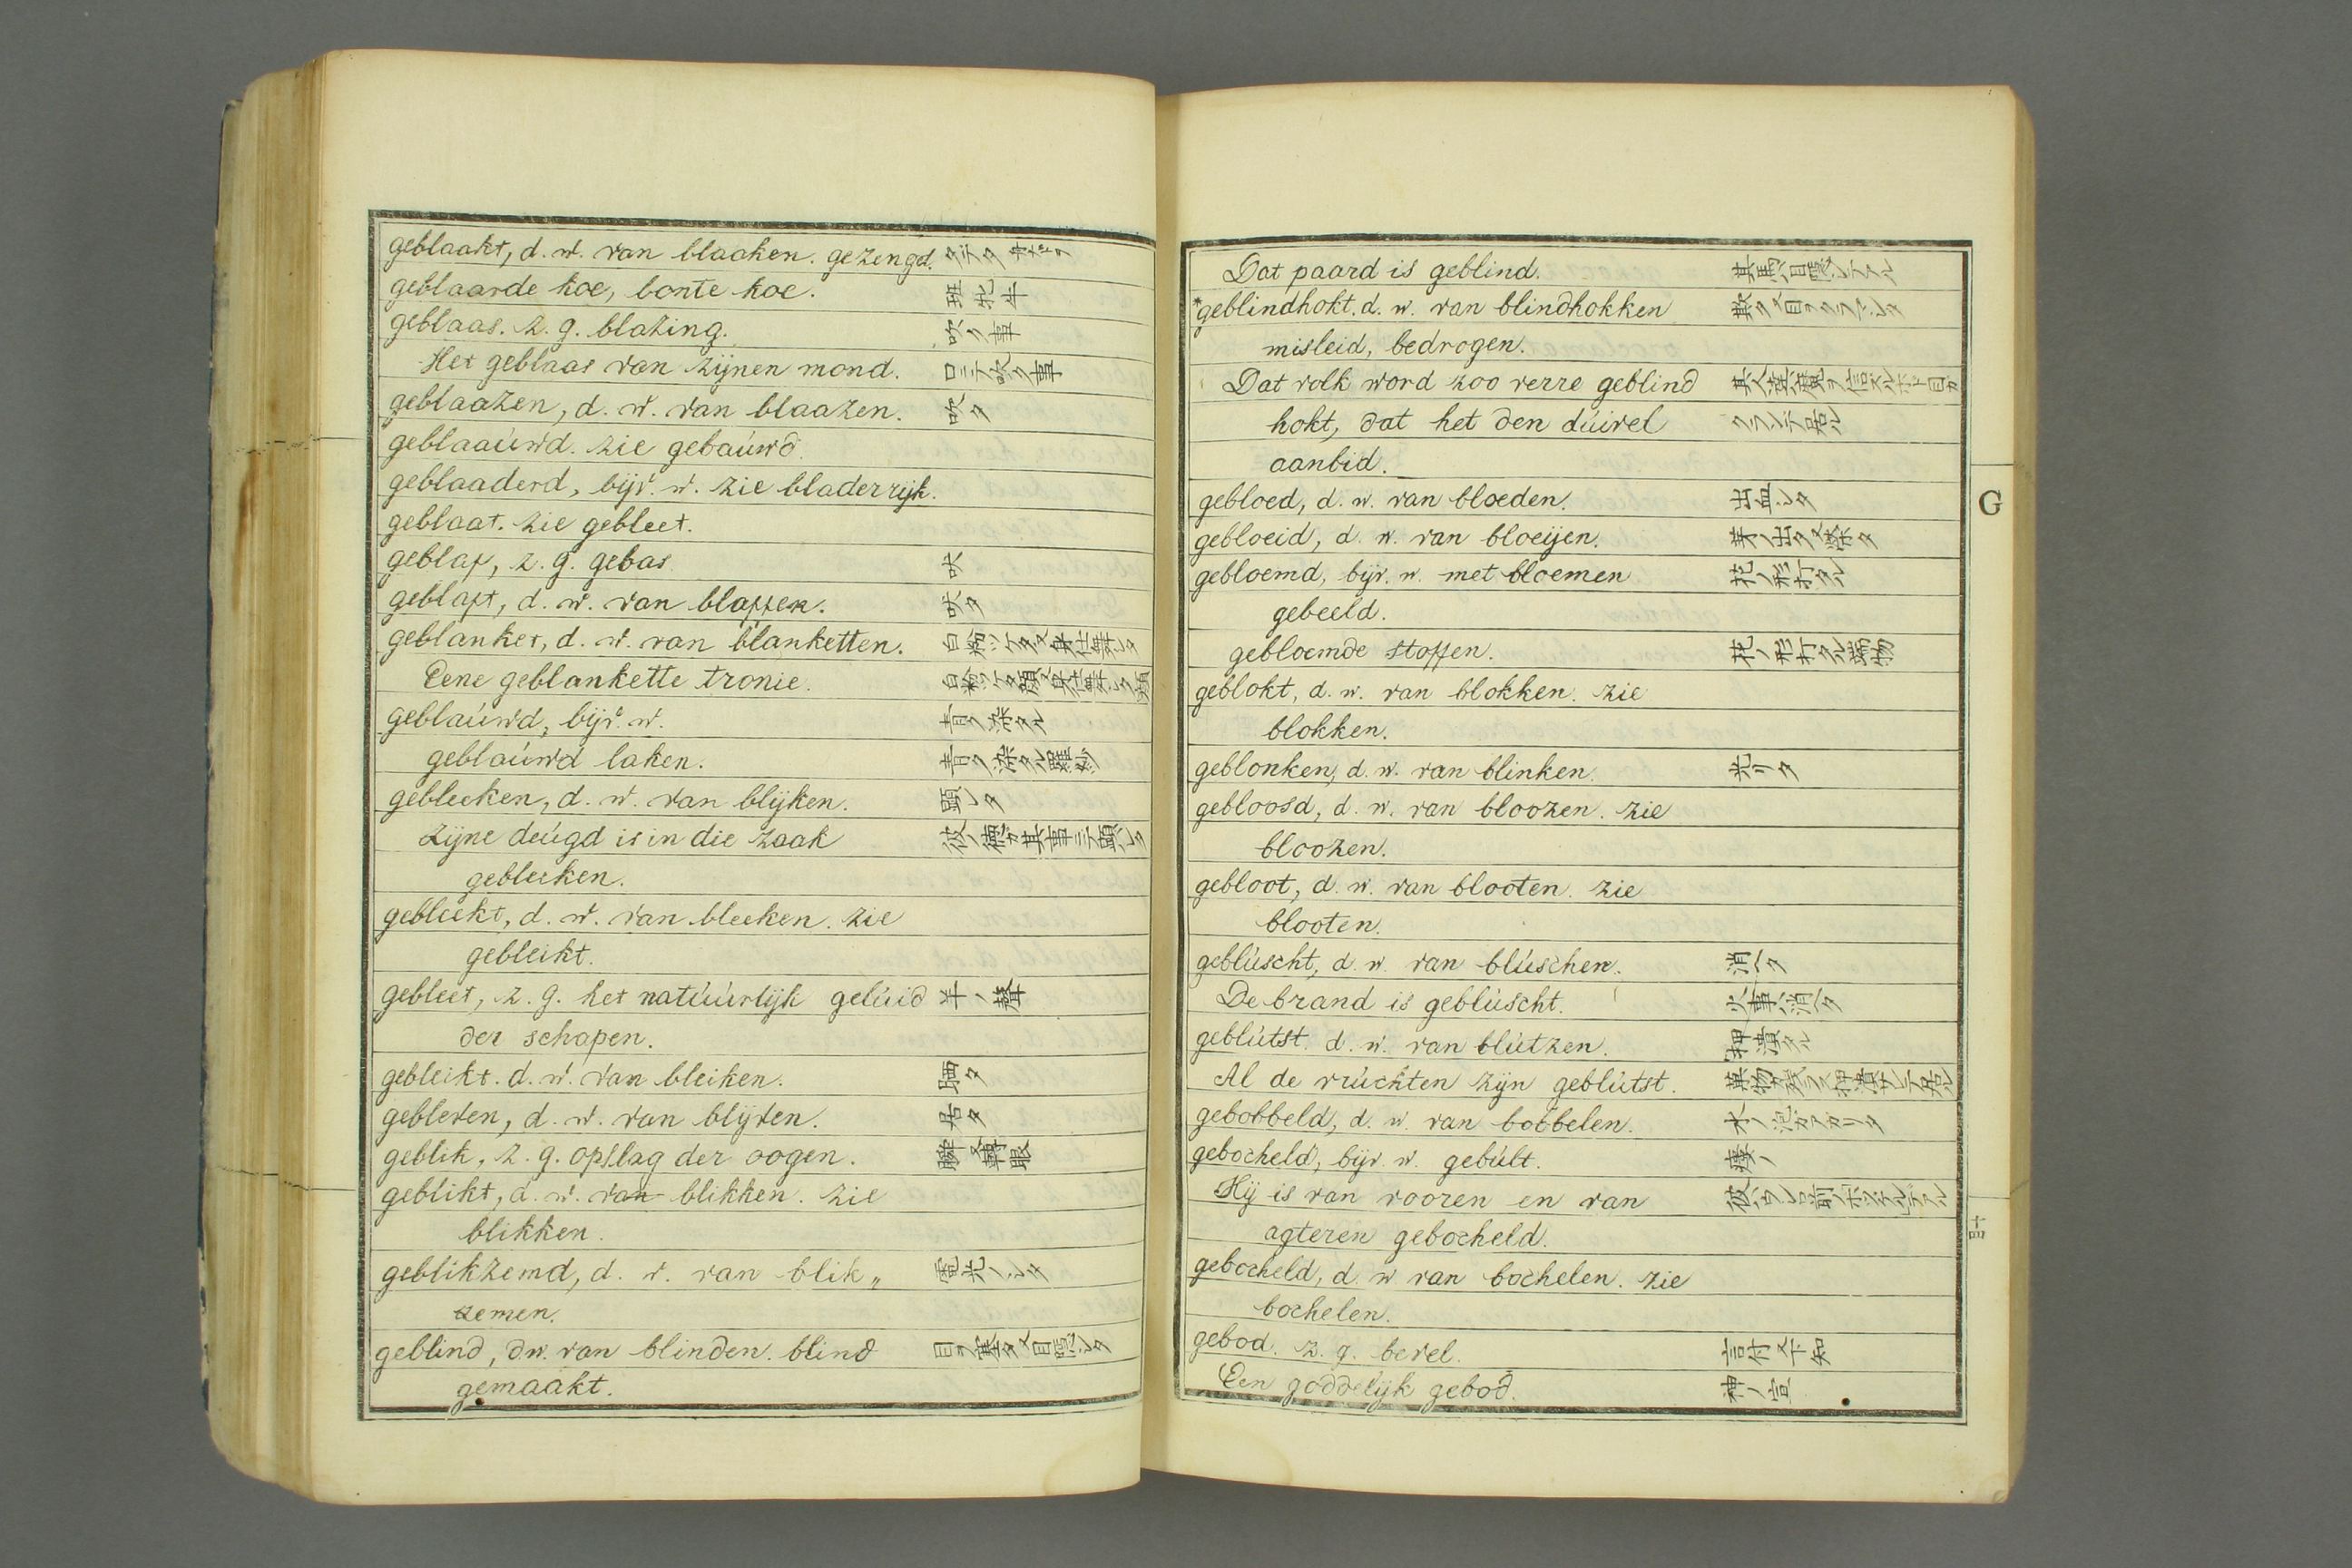 geblaakt, d. w. van blaaken. gezengd.
geblaarde koe, bonte koe. 班牝牛
geblaas. z. g. blazing. 吹ク事
Het geblaas van zijnen mond. 口ニテ吹ク事
geblaazen, d. w. van blaazen. 吹タ
geblaaúwd. zie gebaúwd.
geblaaderd, bijv. w. zie bladerrijk.
geblaat. zie gebleet.
geblaf, z. g. gebas 吠
geblaft, d. w. van blaffen. 吠タ
geblanket, d. w. van blanketten.
Eene geblankette tronie.
geblaúwd, bijv. w. 青ク染タル
geblaúwd laken. 青ク染タル羅紗
gebleeken, d. w. van blijken. 顕レタ
zijne deúgd is in die zaak 彼ノ徳ガ其事ニテ顕レタ
gebleeken.
gebleekt, d. w. van bleeken. zie
gebleikt.
gebleet, z. g. het natúúrlijk gelúid 羊ノ聲
der schapen.
gebleikt. d. w. van bleiken. 晒タ
gebleven, d. w. van blijven. 居タ
geblik, z. g. opslag der oogen.
geblikt, d. w. van blikken. zie
blikken.
geblikzemd, d. v. van blik„ 電光ノシタ
zemen.
geblind, dw. van blinden. blind 目ヲ塞タ又目隠シタ
gemaakt.
Dat paard is geblind. 其馬ハ目隠シテアル
*geblindhokt. d. w. van blindhokken
misleid, bedrogen.
Dat volk word zoo verre geblind
hokt, dat het den dúivel
aanbid.
gebloed, d. w. van bloeden. 出血シタ
gebloeid, d. w. van bloeijen.
gebloemd, bijv. w. met bloemen 花ノ形打タル
gebeeld.
gebloemde stoffen. 花ノ形打タル端物
geblokt, d. w. van blokken. zie
blokken.
geblonken, d. w. van blinken. 光リタ
gebloosd, d. w. van bloozen. zie
bloozen.
gebloot, d. w. van blooten. zie
blooten.
geblúscht, d. w. van blúschen. 消ヘタ
De brand is geblúscht. 火事ハ消ヘタ
geblútst. d. w. van blútzen. 押潰タル
Al de vrúchten zijn geblútst.
gebobbeld, d. w. van bobbelen.
gebocheld, bijv. w. gebúlt.
Hij is van vooren en van
agteren gebocheld.
gebocheld, d. w van bochelen. zie
bochelen.
gebod. z. g. bevel. 言付又下知
Een goddelijk gebod. 神ノ宣
G